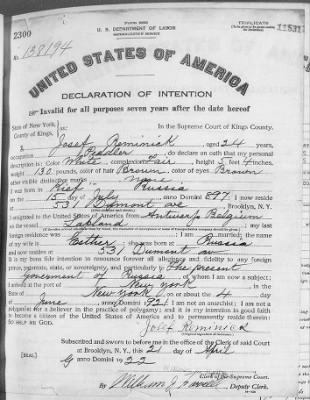 FORM 2203
TRIPLICATE
U. S. DEPARTMENT OF LABOR
NATURALIZATION SERVICE
2300
No. 138194
UNITED STATES OF AMERICA
DECLARATION OF INTENTION
Invalid for all purposes seven years after the date hereof
State of New York,
County of Kings, ss:
In the Supreme Court of Kings County.
I, Josef Reminick, aged 24 years,
occupation Peddler, do declare on oath that my personal
description is: Color White, complexion Fair, height 5 feet 4 inches,
weight 130 pounds, color of hair Brown, color of eyes Brown
other visible distinctive marks
I was born in Kief Russia
on the 15 day of July, anno Domini 1897; I now reside
at 531 Dumont ave, Brooklyn, N. Y.
I emigrated to the United States of America from Antwerp Belgium
on the vessel Lapland; my last
foreign residence was; I am married; the name
of my wife is; she was born at Russia
and now resides at 531 Dumont ave
It is my bona fide intention to renounce forever all allegiance and fidelity to any foreign
prince, potentate, state, or sovereignty, and particularly to The present
government of Russia, of whom I am now a subject;
I arrived at the port of New York, in the
State of New York, on or about the 4 day
of June, anno Domini 1921; I am not an anarchist; I am not a
polygamist nor a believer in the practice of polygamy; and it is my intention in good faith
to become a citizen of the United States of America and to permanently reside therein:
SO HELP ME GOD.
Josef Reminick
Subscribed and sworn to before me in the office of the Clerk of said Court
at Brooklyn, N. Y., this 21 day of April
[SEAL] anno Domini 1922
Clerk of the Supreme Court.
By William J., Deputy Clerk.